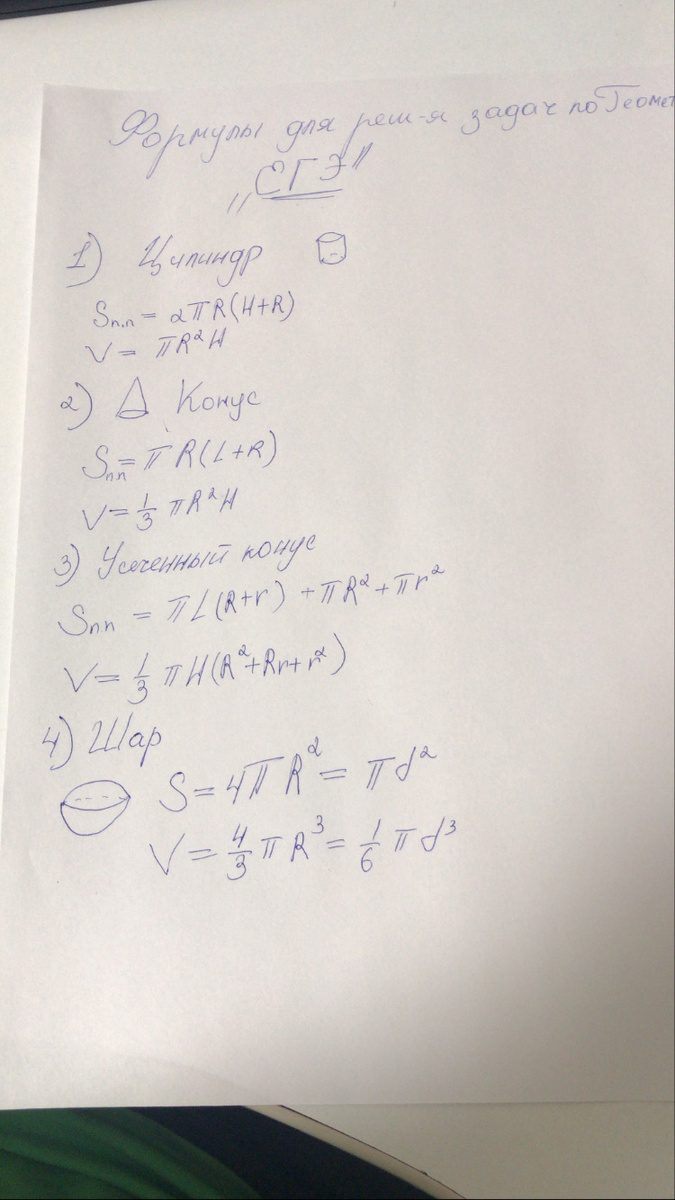 Формулы для реш-я задач по Геомет
„ЕГЭ"
1) Цилиндр
Sп.п = 2πR(H+R)
V = πR²H
2) Конус
Sпп = πR(L+R)
V = 1/3 πR²H
3) Усеченный конус
Sпп = πL(R+r) + πR² + πr²
V = 1/3 πH(R²+Rr+r²)
4) Шар
S = 4πR² = πd²
V = 4/3 πR³ = 1/6 πd³